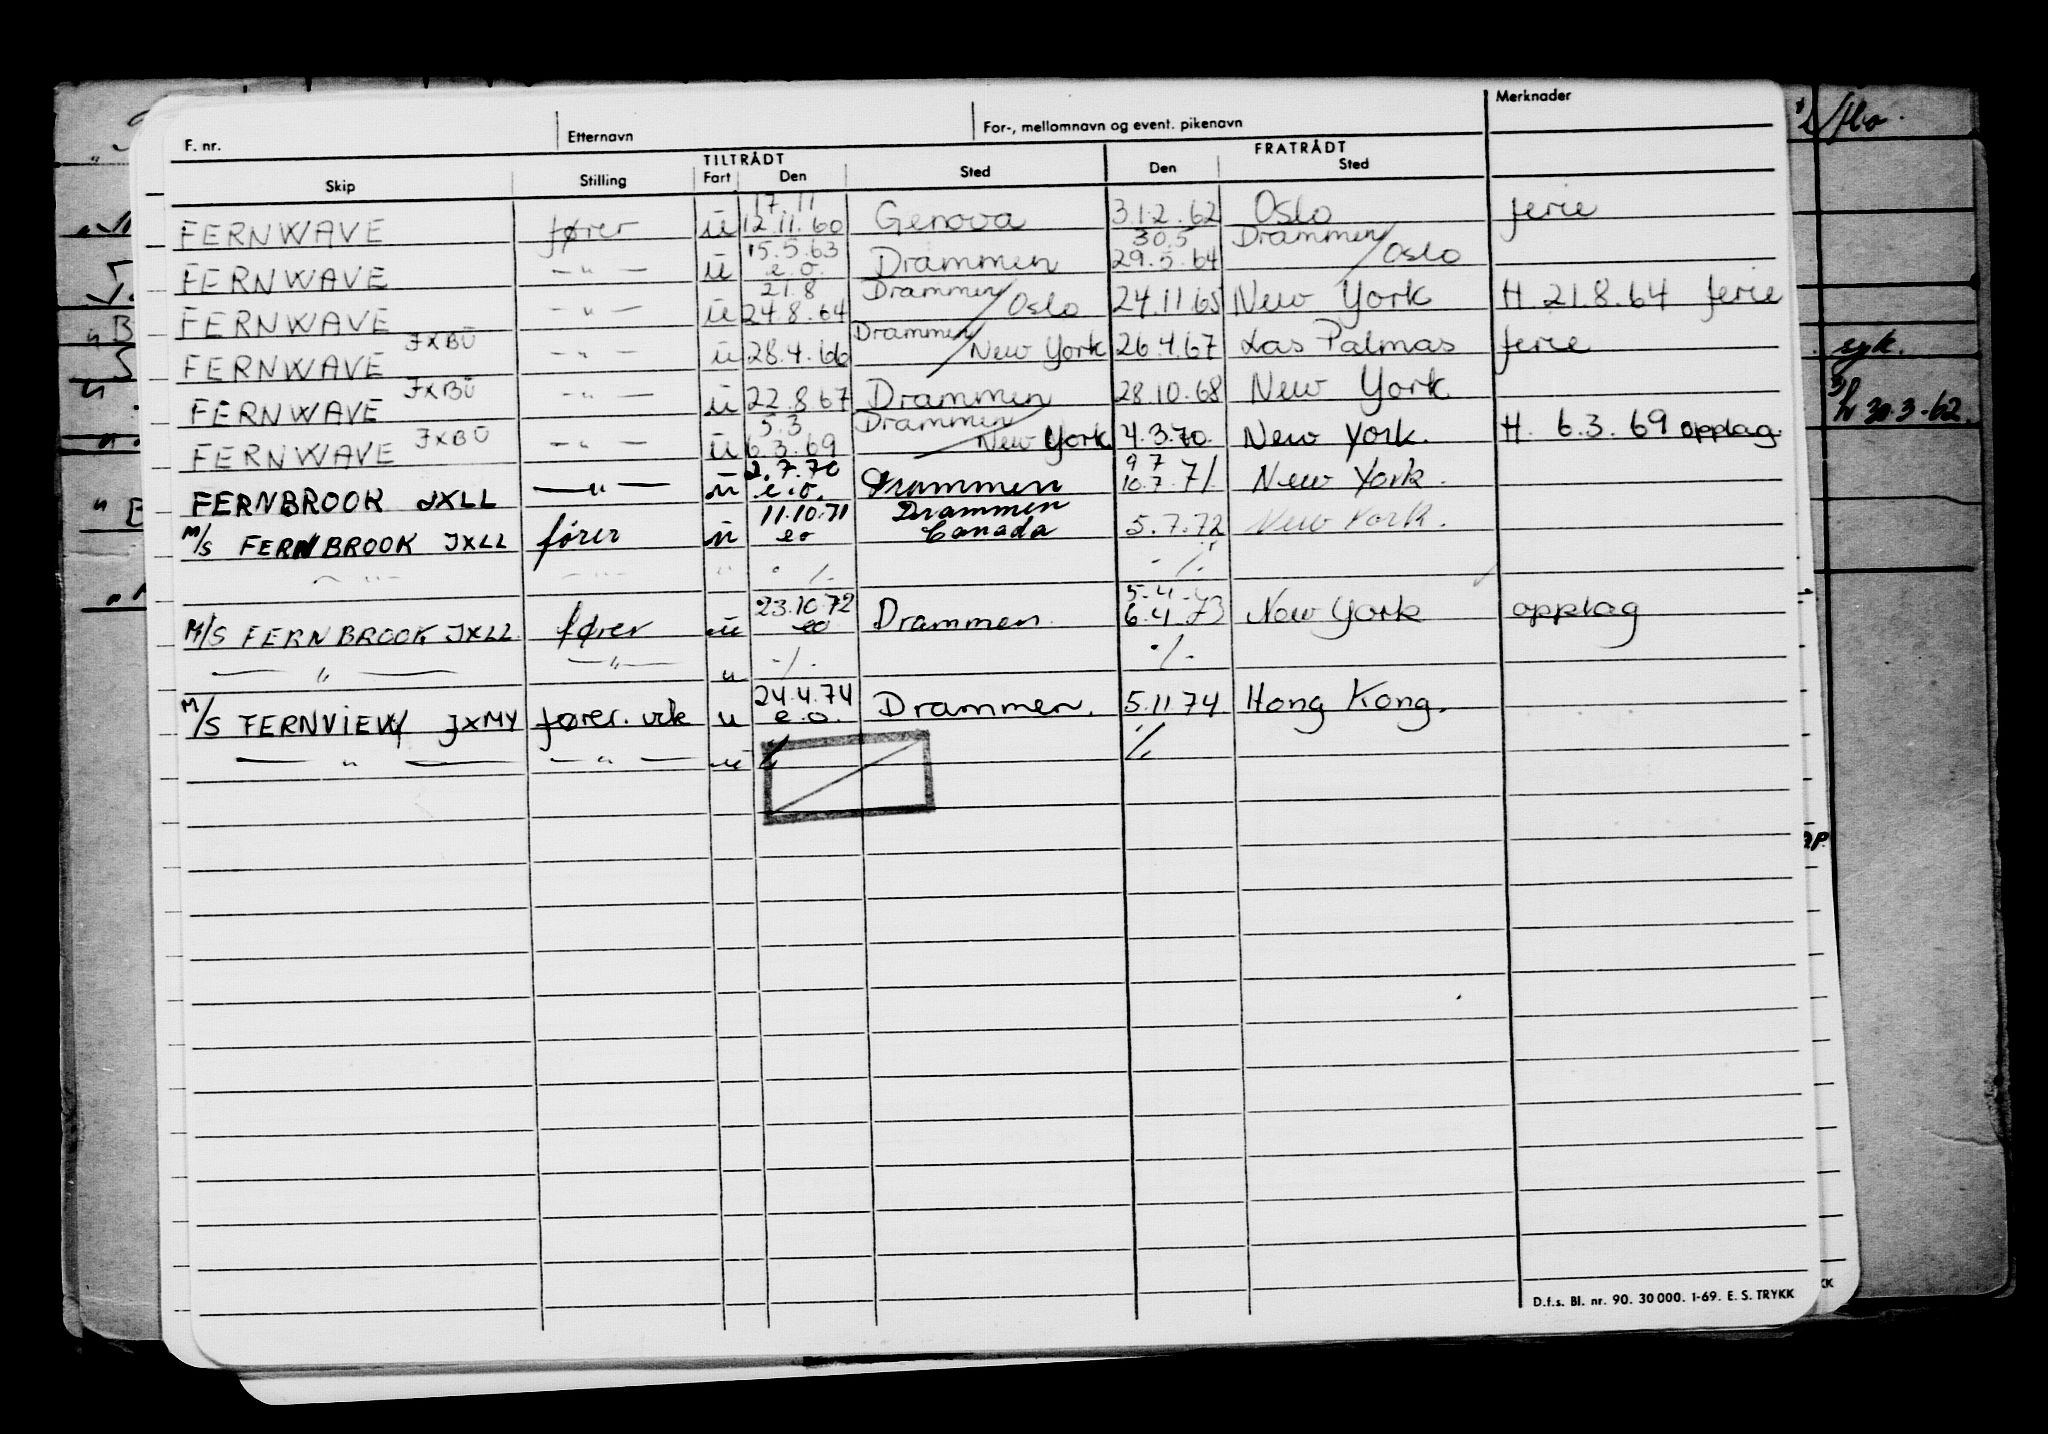 F. nr. Etternavn For-, mellomnavn og event. pikenavn Merknader
TILTRÅDT FRATRÅDT
Skip Stilling Fart Den Sted Den Sted
17.11
FERNWAVE fører ū 12.11.60 Genova 31.2.62 Oslo ferie
15.5.63 30.5 Drammen/
FERNWAVE — " — ū e.o. Drammen 29.5.64 Oslo
21.8 Drammen/
FERNWAVE — " — ū 24.8.64 Oslo 24.11.65 New York H. 21.8.64 ferie
Drammen/
FERNWAVE JXBU — " — ū 28.4.66 New York 26.4.67 Las Palmas ferie
FERNWAVE JXBU — " — ū 22.8.67 Drammen 28.10.68 New York
5.3. Drammen/
FERNWAVE JXBU — " — ū 6.3.69 New York 4.3.70. New York. H. 6.3.69 opplag.
2.7.70 9 7
FERNBROOK JXLL — " — ū e.o. Drammen 10.7.71 New York.
11.10.71 Drammen
M/S FERNBROOK JXLL fører ū eo Canada 5.7.72 New York.
— " — — " — " ./. ./.
23.10.72 5.4.73
M/S FERNBROOK JXLL fører ū eo Drammen 6.4.73 New York opplag
— " — — " — " ./. ./.
24.4.74
M/S FERNVIEW JXMY fører. vik u e.o. Drammen. 5.11.74 Hong Kong.
— " — — " — ū ./. ./.
syk.
30.3-62.
D.f.s. Bl. nr. 90. 30 000. 1-69. E. S. TRYKK